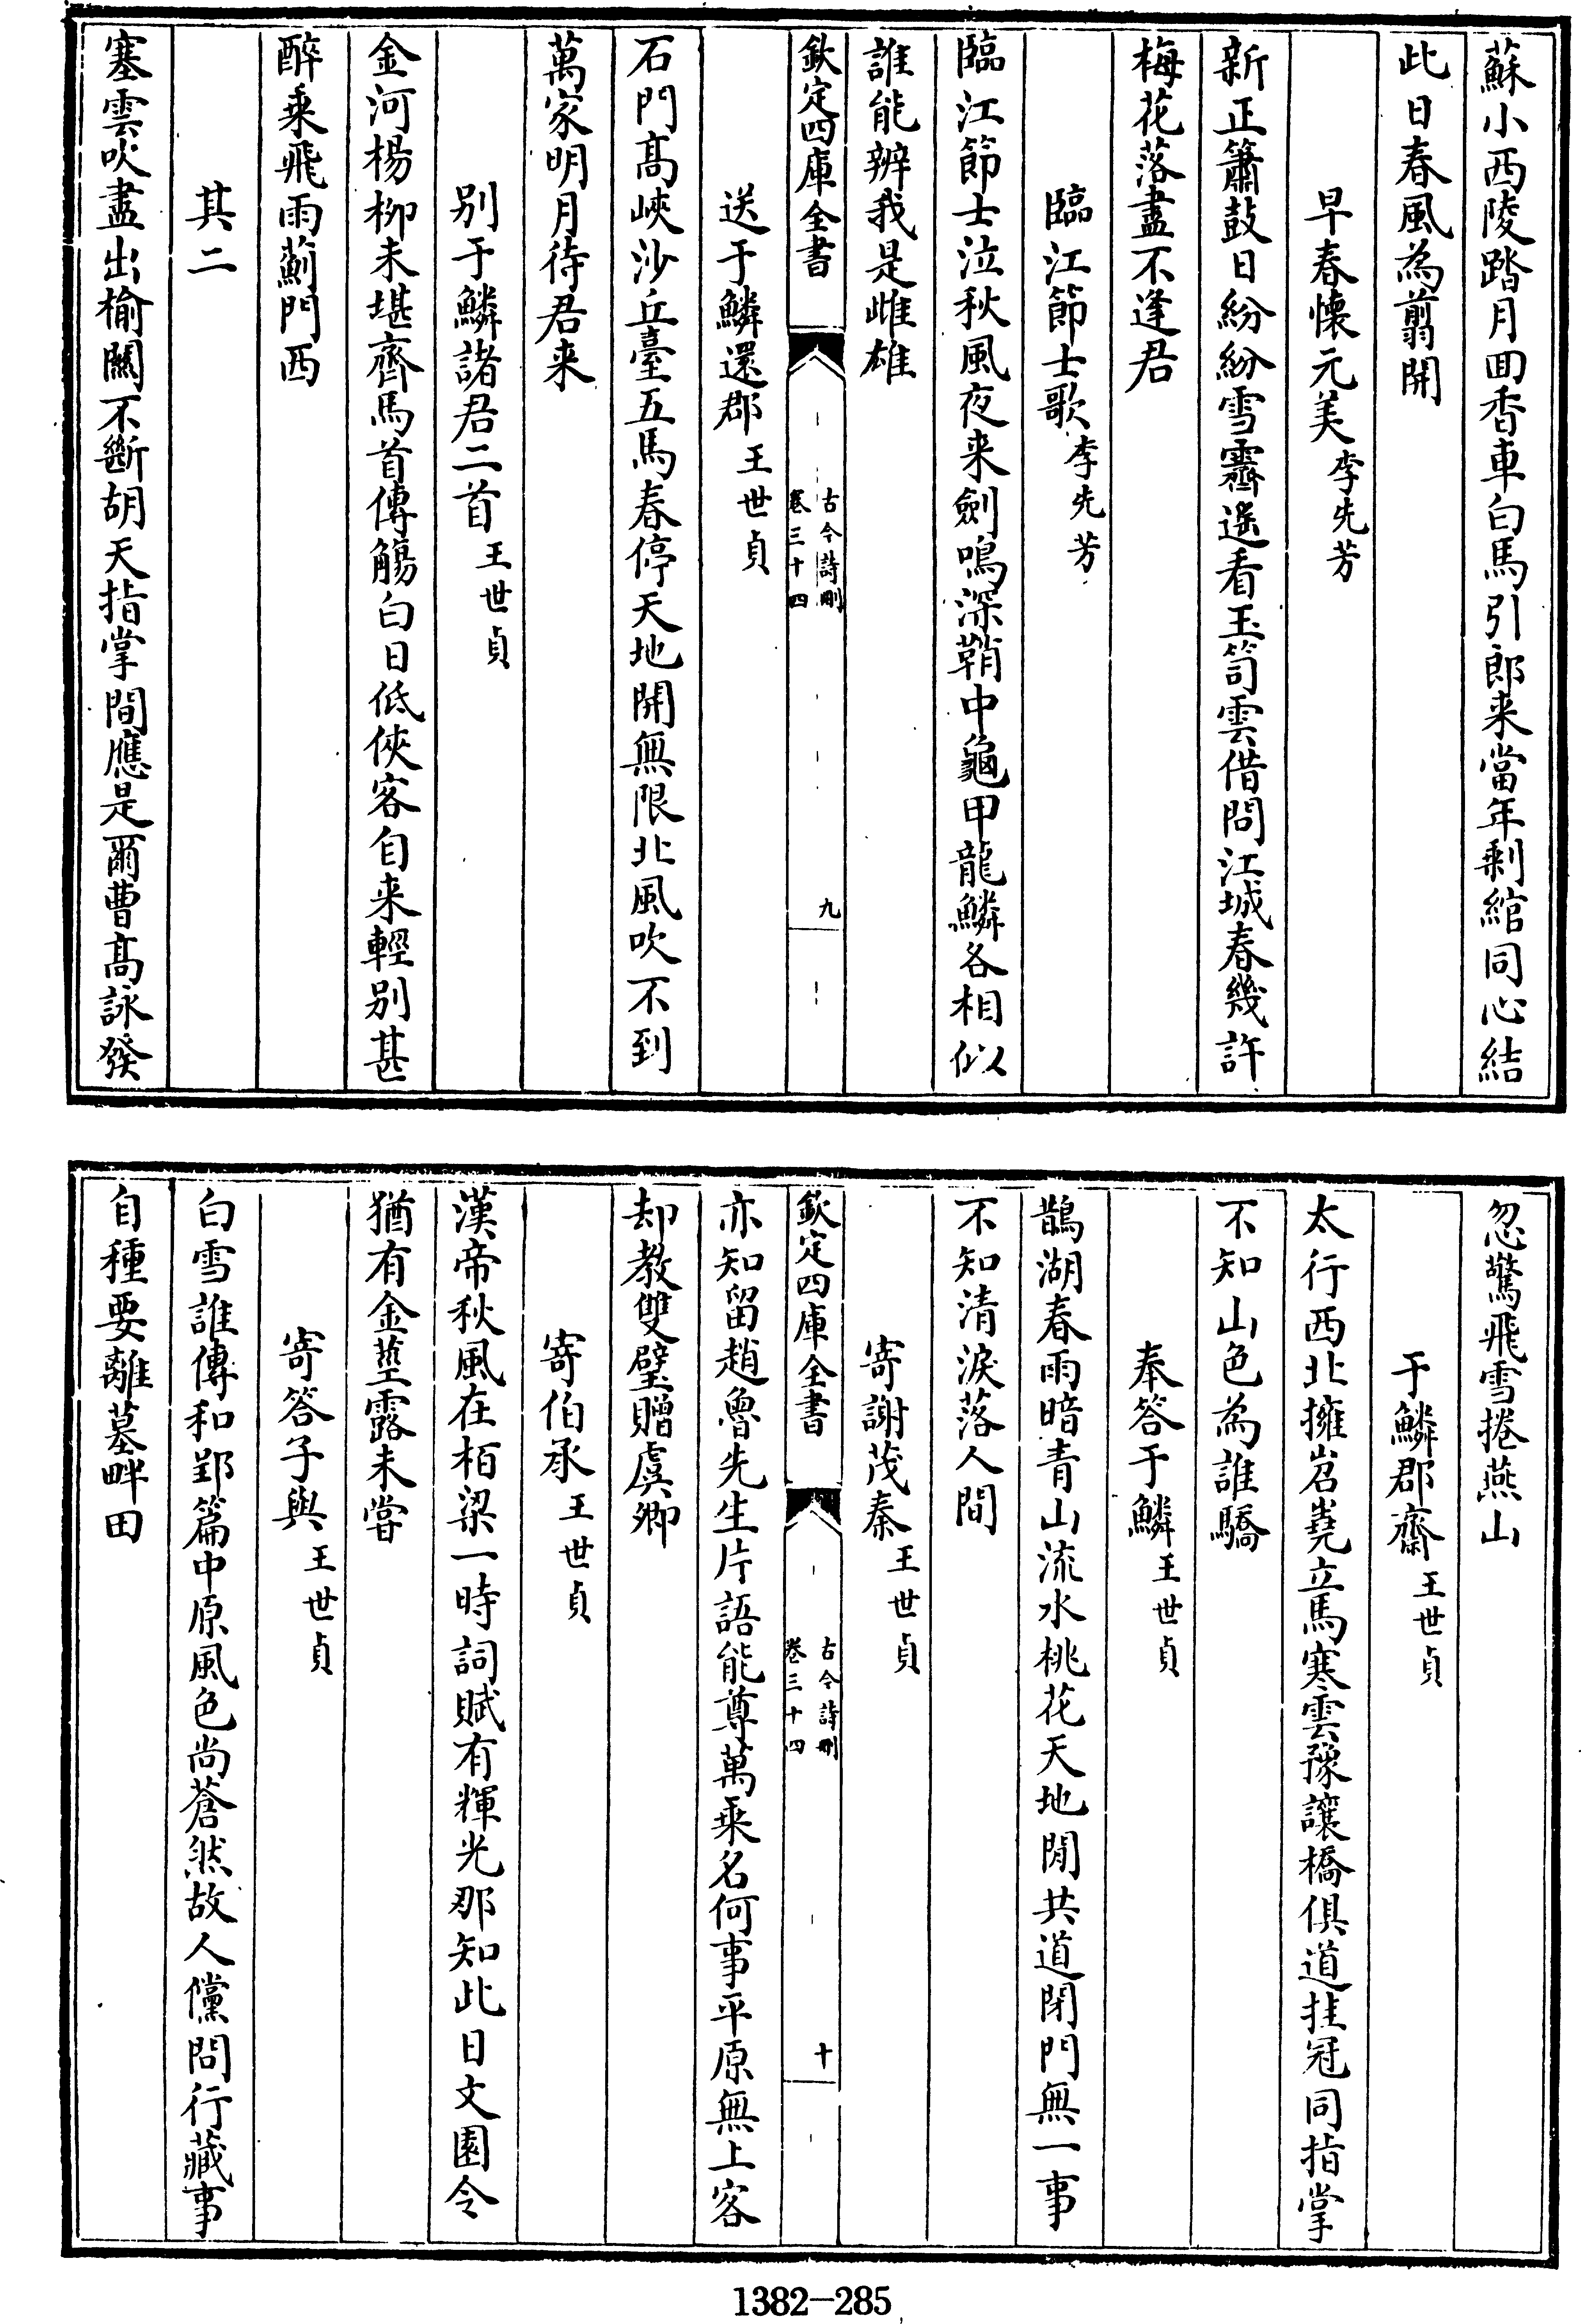 蘇小西陵踏月囬香車白馬引郎来當年剩綰同心結
此日春風為翦開
早春懷元美李先芳
新正簫鼓日紛紛雪霽遥看玉笥雲借問江城春幾許
梅花落盡不逢君
臨江節士歌李先芳
臨江節士泣秋風夜来劍鳴深鞘中龜甲龍鱗各相似
誰能辨我是雌雄
欽定四庫全書
古今詩刪
卷三十四
九
送于鱗還郡王世貞
石門髙峽沙丘臺五馬春停天地開無限北風吹不到
萬家明月待君来
别于鱗諸君二首王世貞
金河楊栁未堪齊馬首傳觴白日低俠客自来輕别甚
醉乘飛雨薊門西
其二
塞雲吹盡出榆闗不斷胡天指掌間應是爾曹髙詠發
忽驚飛雪捲燕山
于鱗郡齋王世貞
太行西北擁岧嶤立馬寒雲豫讓橋俱道挂冠同指掌
不知山色為誰驕
奉答于鱗王世貞
鵲湖春雨暗青山流水桃花天地閒共道閉門無一事
不知清淚落人間
寄謝茂秦王世貞
欽定四庫全書
古今詩刪
卷三十四
十
亦知留趙魯先生片語能尊萬乘名何事平原無上客
却教雙璧贈虞卿
寄伯承王世貞
漢帝秋風在栢梁一時詞賦有輝光那知此日文園令
猶有金莖露未嘗
寄答子與王世貞
白雪誰傳和郢篇中原風色尚蒼然故人儻問行藏事
自種要離墓畔田
1382-285